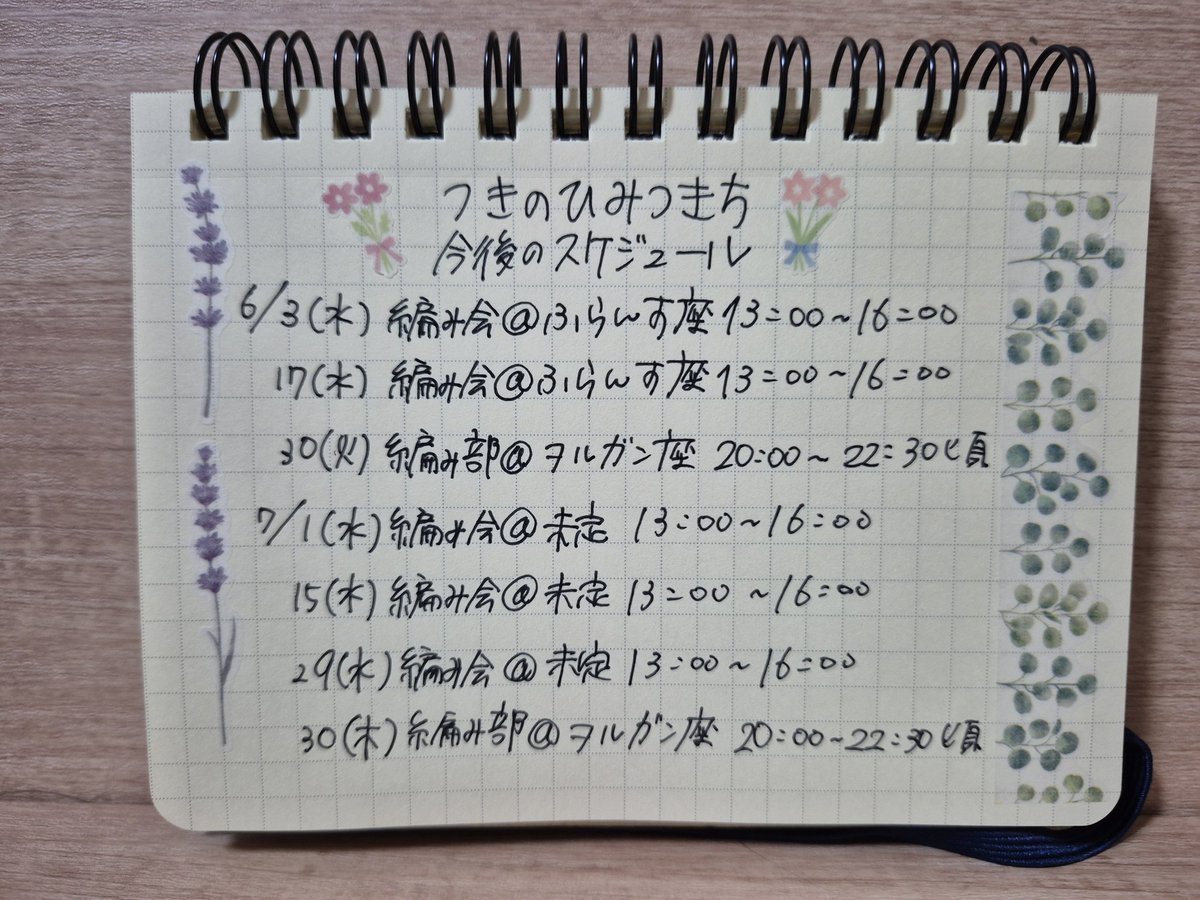 つきのひみつきち
今後のスケジュール
6/3(水) 編み会@ふらんす座 13:00~16:00
17(水) 編み会@ふらんす座 13:00~16:00
30(火) 編み部@ヲルガン座 20:00~22:30頃
7/1(水) 編み会@未定 13:00~16:00
15(水) 編み会@未定 13:00~16:00
29(水) 編み会@未定 13:00~16:00
30(木) 編み部@ヲルガン座 20:00~22:30頃